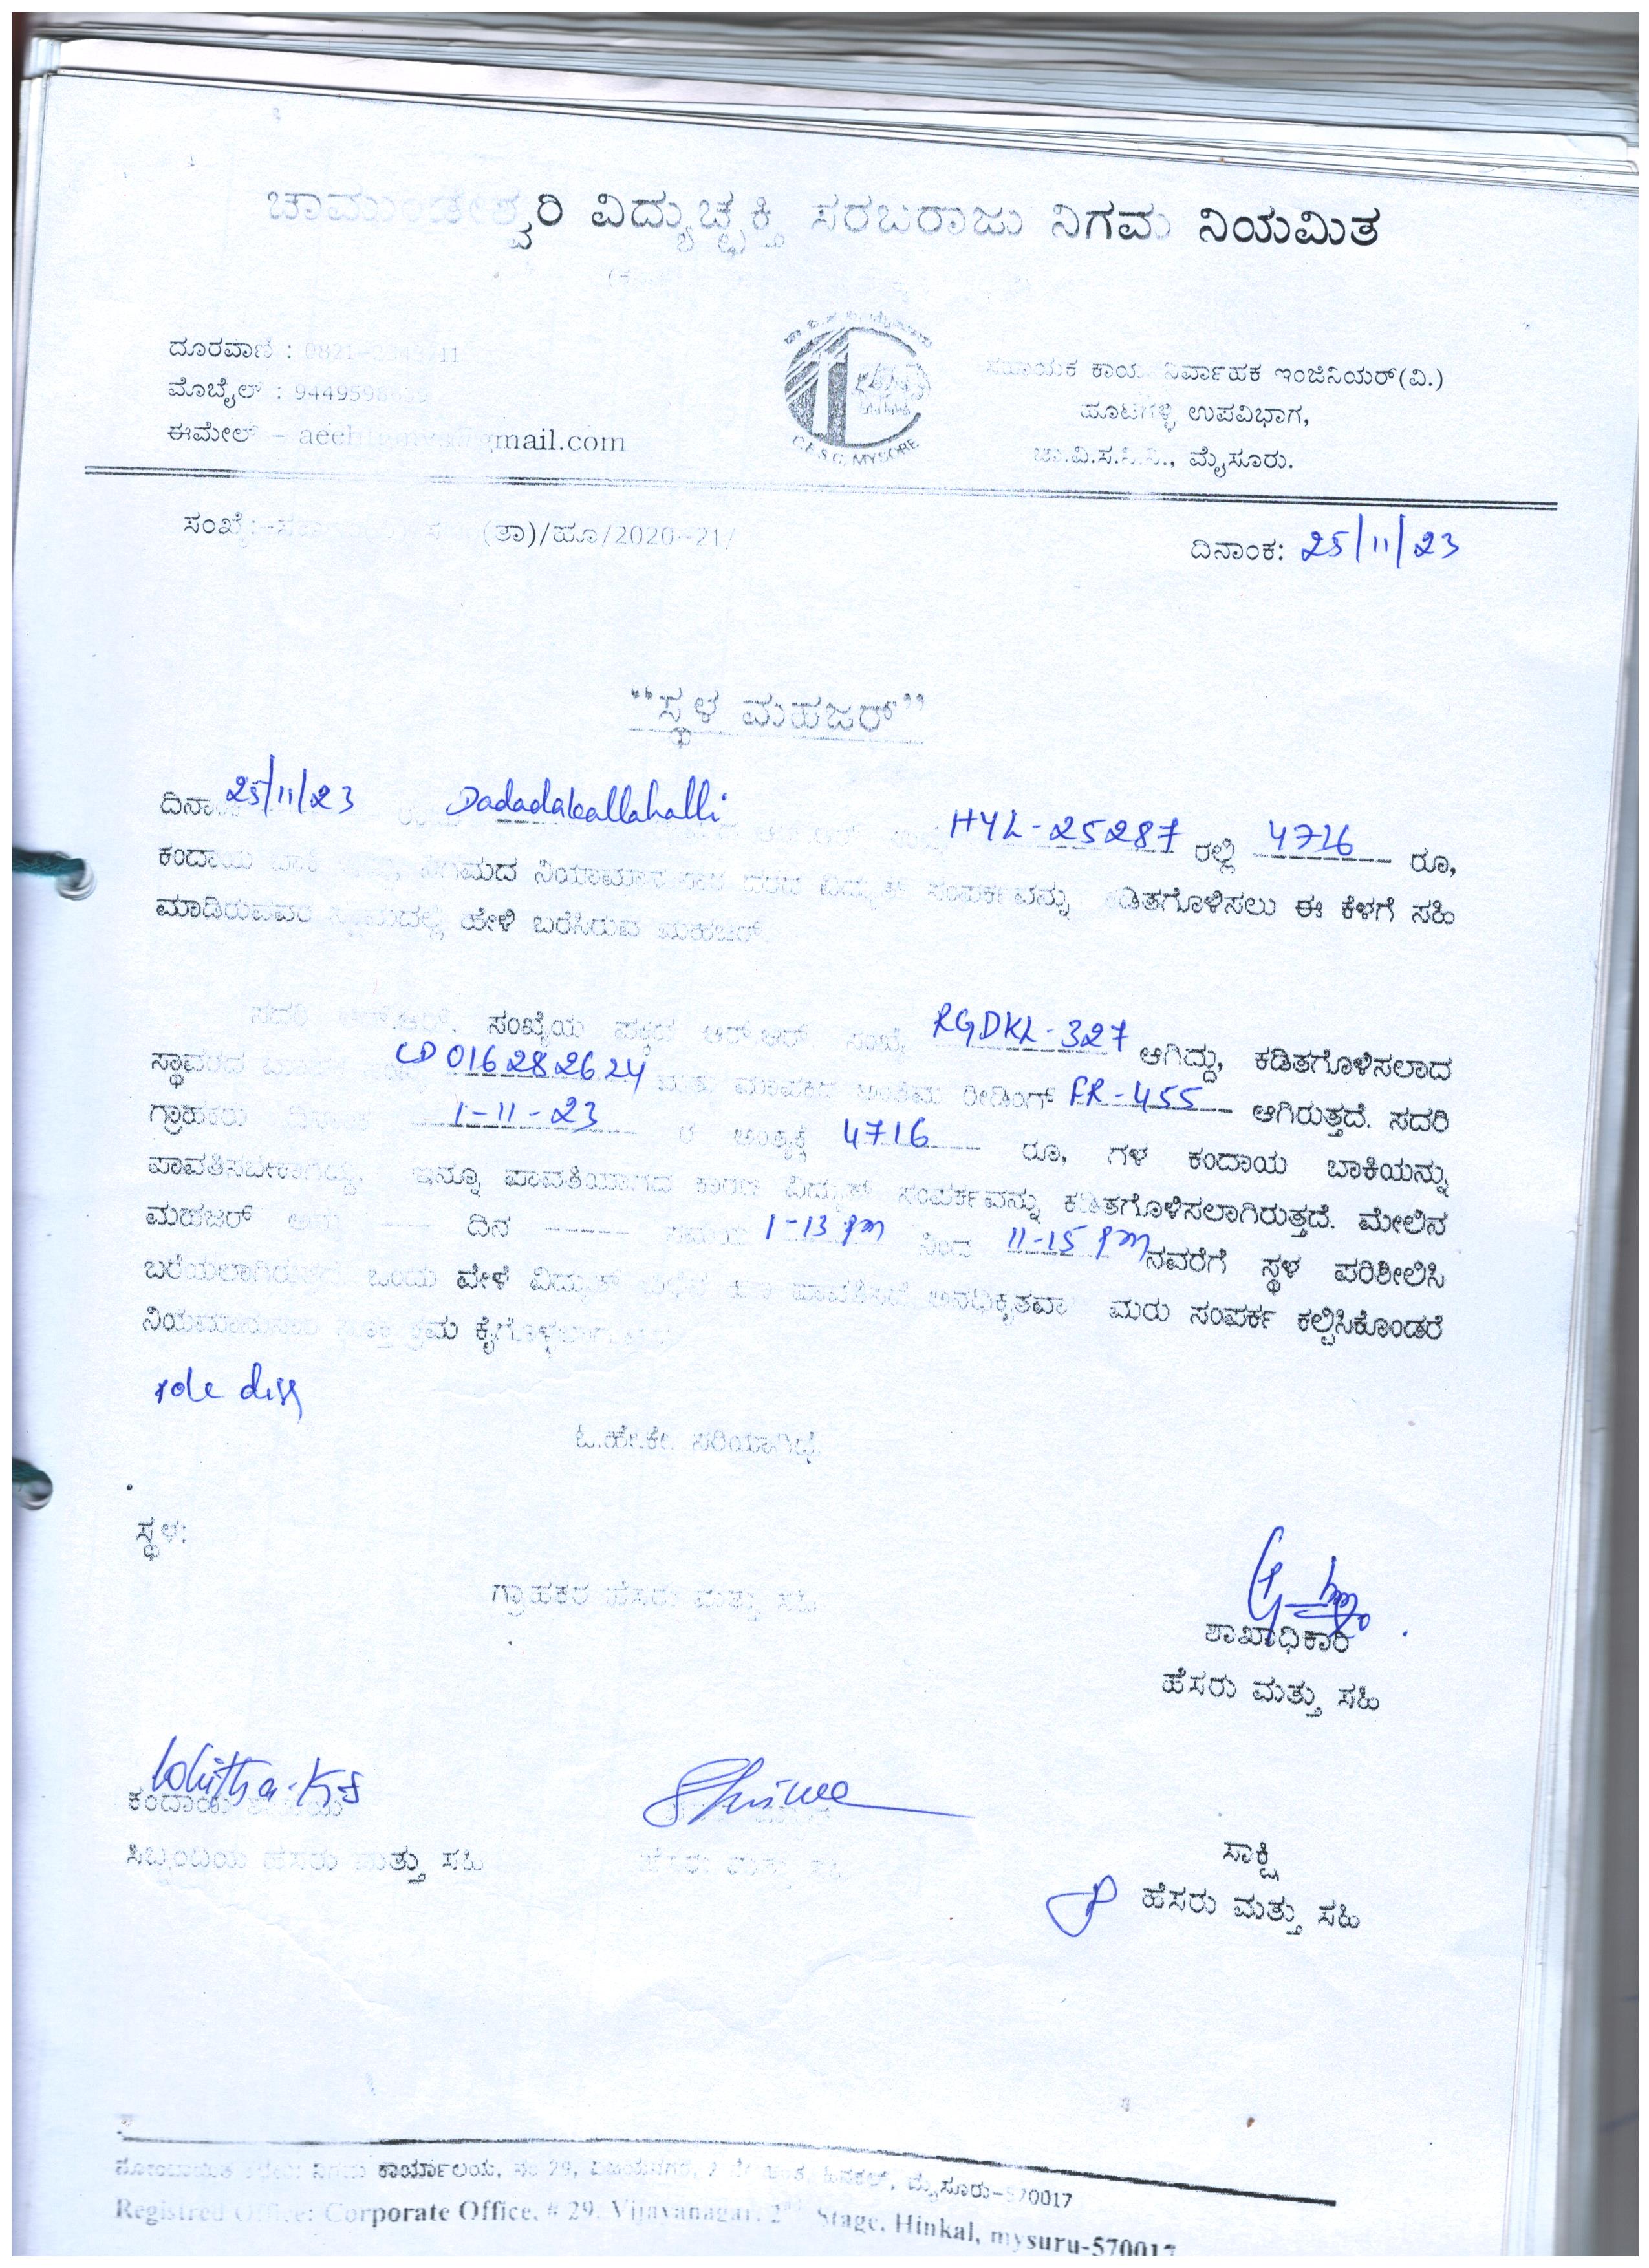 ಚಾಮುಂಡೇಶ್ವರಿ ವಿದ್ಯುಚ್ಛಕ್ತಿ ಸರಬರಾಜು ನಿಗಮ ನಿಯಮಿತ
ದೂರವಾಣಿ : 0821-
ಮೊಬೈಲ್ : 9449598639
ಈಮೇಲ್ - gmail.com
C.E.S.C, MYSORE
ಸಹಾಯಕ ಕಾರ್ಯನಿರ್ವಾಹಕ ಇಂಜಿನಿಯರ್(ವಿ.)
ಹೂಟಗಳ್ಳಿ ಉಪವಿಭಾಗ,
ಚಾ.ವಿ.ಸ.ನಿ.ನಿ., ಮೈಸೂರು.
ಸಂಖ್ಯೆ: (ತಾ)/ಹೂ/2020-21/
ದಿನಾಂಕ: 25/11/23
“ಸ್ಥಳ ಮಹಜರ್”
25/11/23 Dadadakallahalli HYL-25287 ರಲ್ಲಿ 4716 ರೂ,
ಕಂದಾಯ ಬಾಕಿ ನಿಗಮದ ವಿದ್ಯುತ್ ಸಂಪರ್ಕವನ್ನು ಕಡಿತಗೊಳಿಸಲು ಈ ಕೆಳಗೆ ಸಹಿ
ಮಾಡಿರುವವರ ಹೇಳಿ ಬರೆಸಿರುವ ಮಹಜರ್
ಸದರಿ ಆರ್.ಆರ್. ಸಂಖ್ಯೆಯ ಪಕ್ಕದ ಆರ್.ಆರ್ ಸಂಖ್ಯೆ RGDKL-327 ಆಗಿದ್ದು, ಕಡಿತಗೊಳಿಸಲಾದ
ಸ್ಥಾವರದ CD 016282624 ಮತ್ತು ಮಾಪಕದ ಅಂತಿಮ ರೀಡಿಂಗ್ FR-455 ಆಗಿರುತ್ತದೆ. ಸದರಿ
ಗ್ರಾಹಕರು ದಿನಾಂಕ 1-11-23 ರ ಅಂತ್ಯಕ್ಕೆ 4716 ರೂ, ಗಳ ಕಂದಾಯ ಬಾಕಿಯನ್ನು
ಪಾವತಿಸಬೇಕಾಗಿದ್ದು, ಇನ್ನೂ ಪಾವತಿಯಾಗದ ಕಾರಣ ವಿದ್ಯುತ್ ಸಂಪರ್ಕವನ್ನು ಕಡಿತಗೊಳಿಸಲಾಗಿರುತ್ತದೆ. ಮೇಲಿನ
ಮಹಜರ್ ದಿನ ಸಮಯ 1-13 pm ನಿಂದ 11-15 pm ನವರೆಗೆ ಸ್ಥಳ ಪರಿಶೀಲಿಸಿ
ಬರೆಯಲಾಗಿರುತ್ತದೆ. ಒಂದು ವೇಳೆ ವಿದ್ಯುತ್ ಪಾವತಿಸದೆ ಅನಧಿಕೃತವಾಗಿ ಮರು ಸಂಪರ್ಕ ಕಲ್ಪಿಸಿಕೊಂಡರೆ
ನಿಯಮಾನುಸಾರ ಸೂಕ್ತ ಕ್ರಮ ಕೈಗೊಳ್ಳಲಾಗುವುದು
ಓ.ಹೇ.ಕೇ. ಸರಿಯಾಗಿದೆ.
ಸ್ಥಳ:
ಗ್ರಾಹಕರ ಹೆಸರು ಮತ್ತು ಸಹಿ
ಶಾಖಾಧಿಕಾರಿ
ಹೆಸರು ಮತ್ತು ಸಹಿ
ಕಂದಾಯ
ಸಿಬ್ಬಂದಿಯ ಹೆಸರು ಮತ್ತು ಸಹಿ
ಹೆಸರು ಮತ್ತು ಸಹಿ
ಸಾಕ್ಷಿ
ಹೆಸರು ಮತ್ತು ಸಹಿ
ಕಾರ್ಯಾಲಯ, ನಂ 29, ವಿಜಯನಗರ, 2 ನೇ ಹಂತ, ಹಿನಕಲ್, ಮೈಸೂರು-570017
Registred Office: Corporate Office, # 29, Vijayanagar, 2nd Stage, Hinkal, mysuru-570017